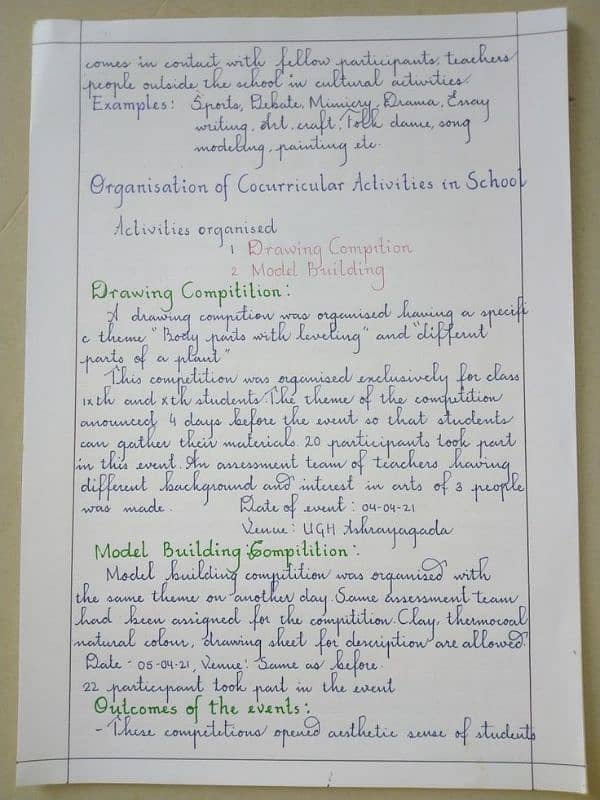 comes in contact with fellow participants, teachers
people outside the school in cultural activities.
Examples: Sports, Debate, Mimicry, Drama, Essay
writing, Art, craft, Folk dance, song
modeling, painting etc.
Organisation of Cocurricular Activities in School
Activities organised
1 Drawing Compition
2 Model Building
Drawing Compitition:
A drawing compition was organised having a specifi
c theme "Body parts with leveling" and "different
parts of a plant"
This competition was organised exclusively for class
ixth and xth students. The theme of the competition
anounced 4 days before the event so that students
can gather their materials. 20 participants took part
in this event. An assessment team of teachers having
different background and interest in arts of 3 people
was made. Date of event: 04-04-21
Venue: UGH Ashrayagada
Model Building Compitition:
Model building compitition was organised with
the same theme on another day. Same assessment team
had been assigned for the compitition. Clay, thermocoal
natural colour, drawing sheet for description are allowed.
Date - 05-04-21, Venue: Same as before.
22 participant took part in the event
Outcomes of the events:
- These competetions opened aesthetic sense of students